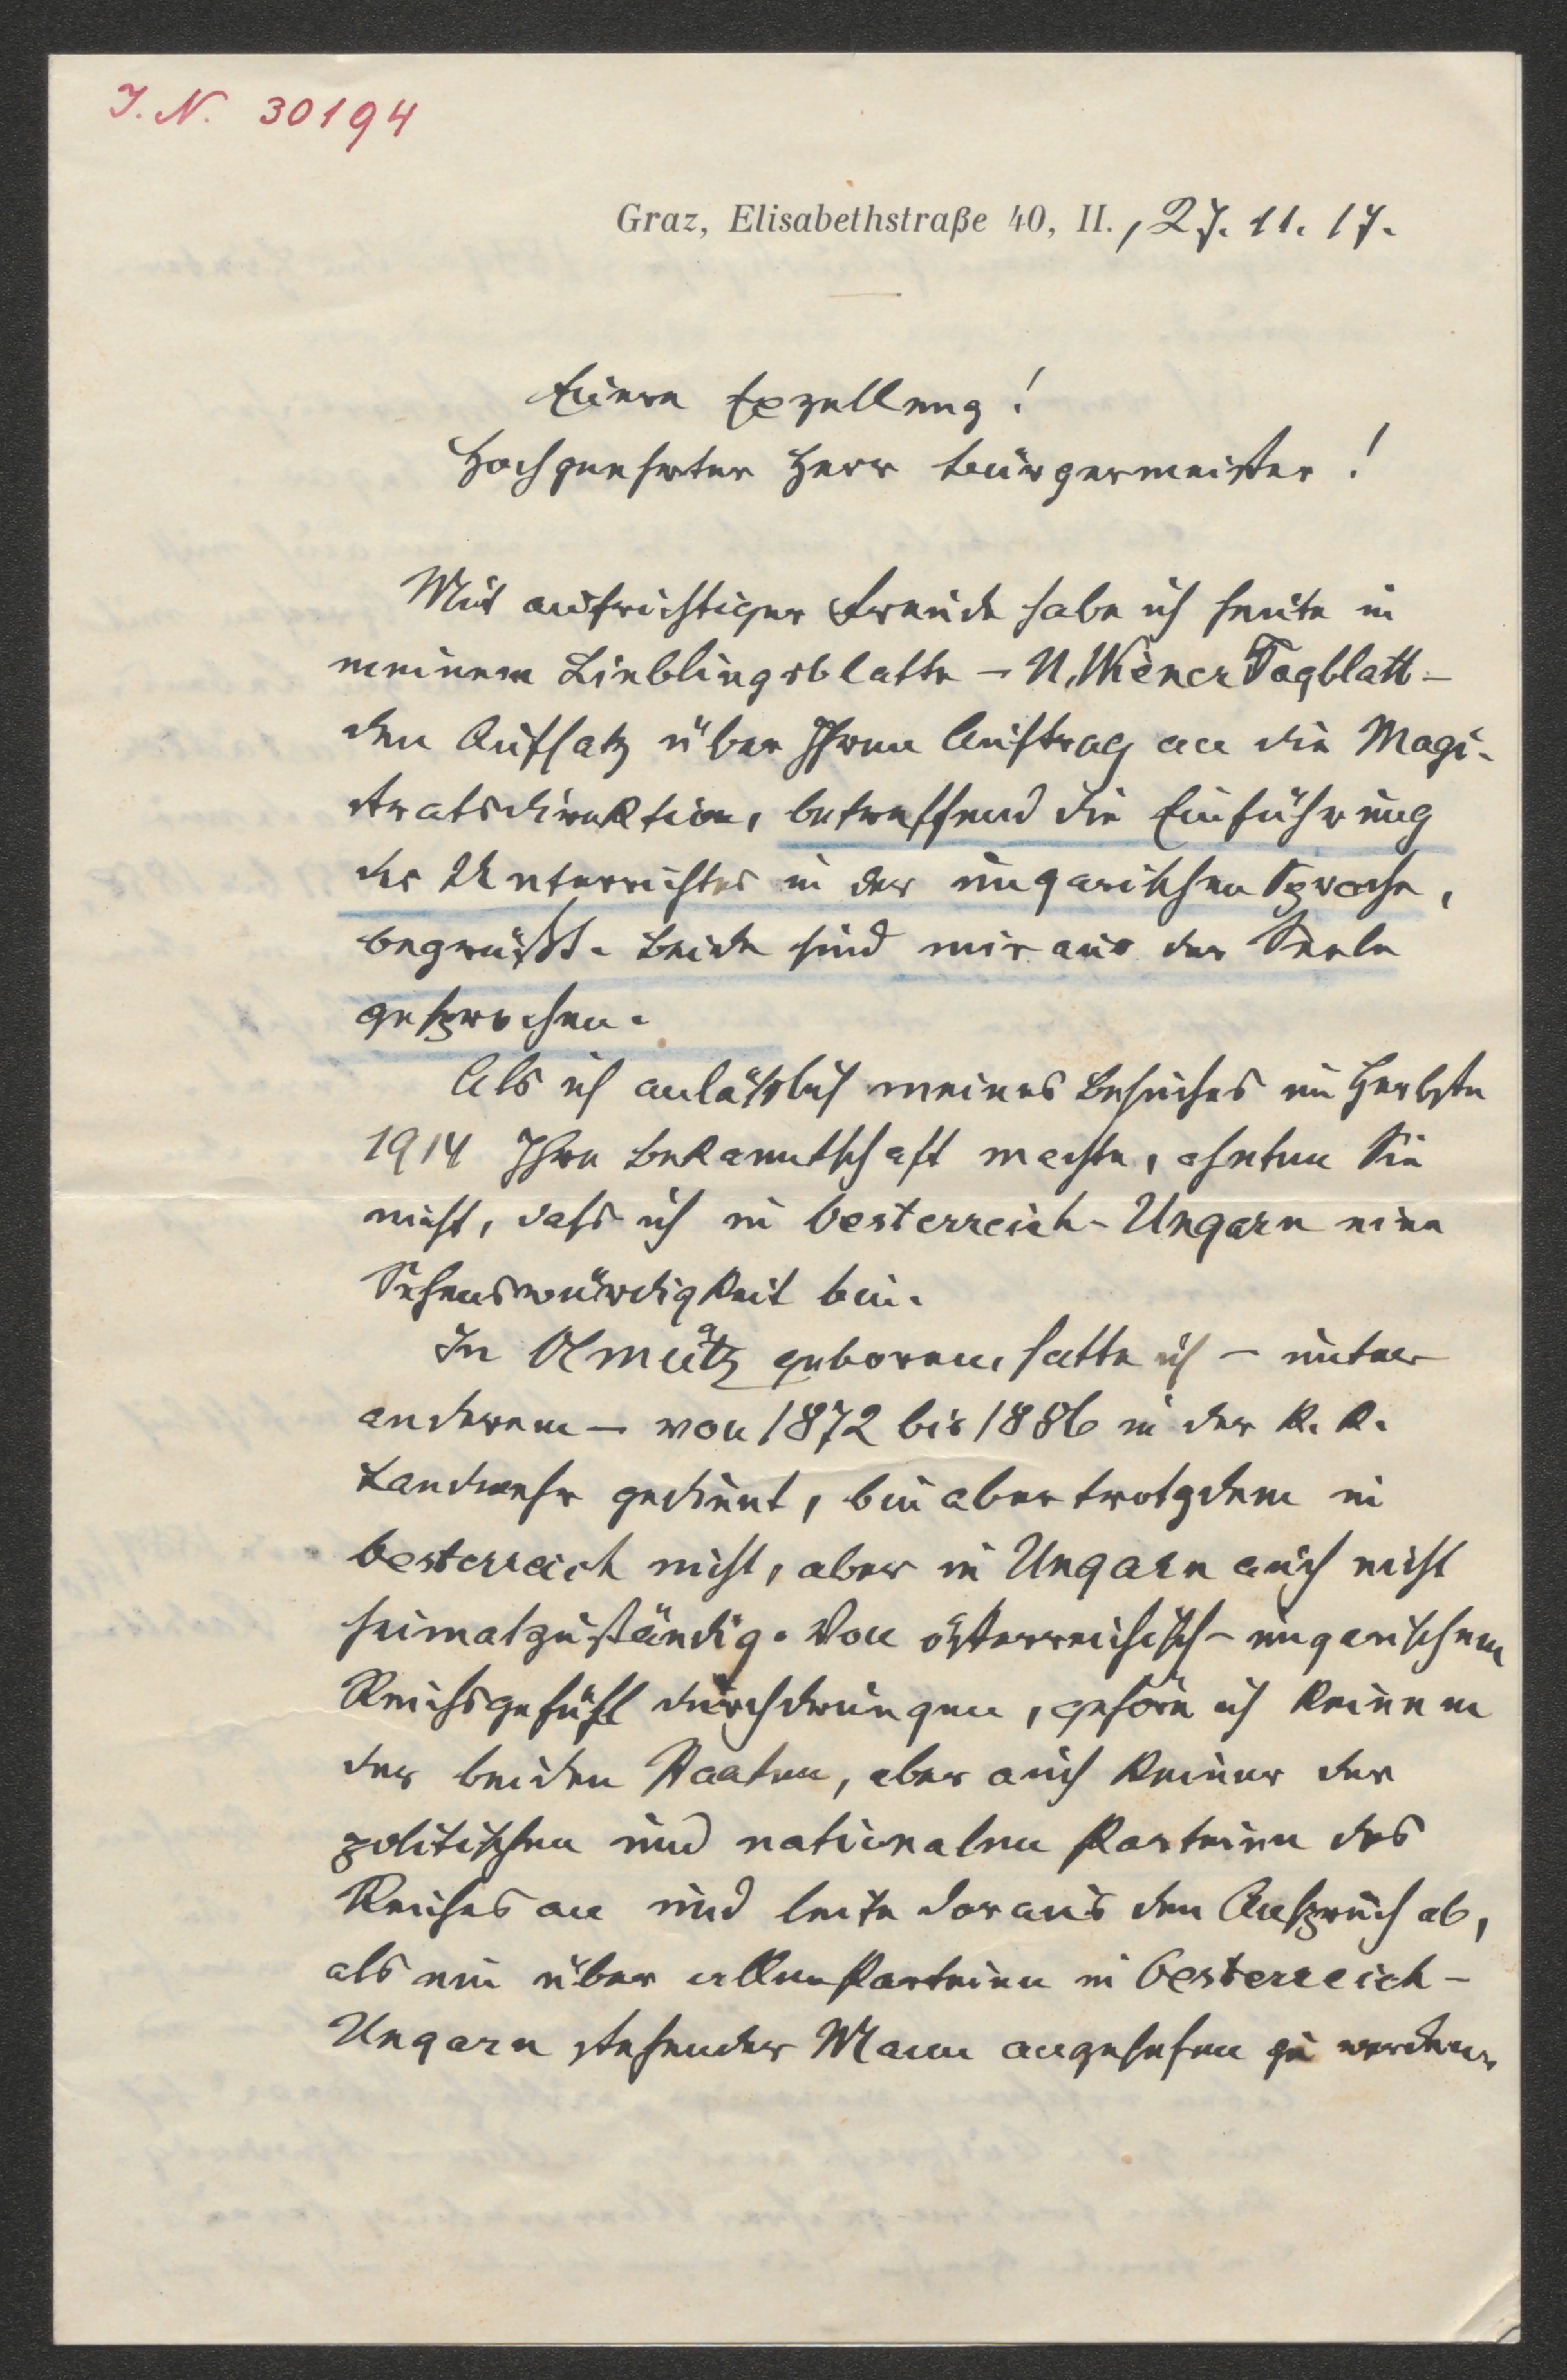 I. N. 30194
Graz, Elisabethstraße 40, II., 27. 11. 17.
Euere Exzellenz!
Hochgeehrter Herr Bürgermeister!
Mit aufrichtiger Freude habe ich heute in
meinem Lieblingsblatte – N. Wiener Tagblatt –
den Aufsatz über Ihren Auftrag an die Magi-
stratsdirektion, betreffend die Einführung
des Unterrichtes in der ungarischen Sprache,
begrüßt. Beide sind mir aus der Seele
gesprochen.
Als ich anläßlich meines Besuches im Herbste
1914 Ihre Bekanntschaft machte, ahnten Sie
nicht, dass ich in Oesterreich-Ungarn eine
Sehenswürdigkeit bin.
In Olmütz geboren, hatte ich – unter
anderem – von 1872 bis 1886 in der k. k.
Landwehr gedient, bin aber trotzdem in
Oesterreich nicht, aber in Ungarn auch nicht
heimatzuständig. Von österreichisch-ungarischem
Reichsgefühl durchdrungen, gehöre ich keinem
der beiden Staaten, aber auch keiner der
politischen und nationalen Parteien des
Reiches an und leite daraus den Anspruch ab,
als ein über allen Parteien in Oesterreich-
Ungarn stehender Mann angesehen zu werden.